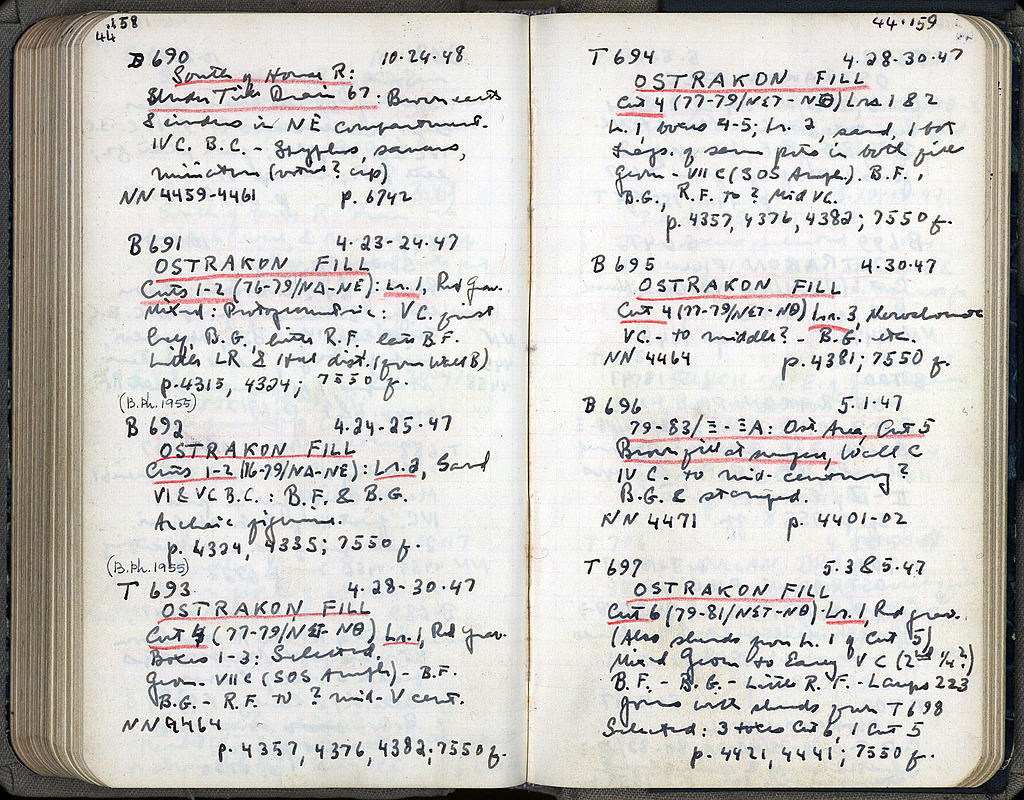 44.158
B 690 10.24.48
South of House R:
Under Tile Drain 67: Brown earth
& cinders in NE compartment.
IV C. B.C. - Skyphos, saucers,
miniature (votive? cup)
NN 4459-4461 p. 6742
B 691 4.23-24.47
OSTRAKON FILL
Cuts 1-2 (76-79/ΝΔ-ΝΕ): Lr. 1, Red Grav.
Mixed: Protogeometric: V C. first
B.G. little R.F. late B.F.
Little LR & dist. (from Wall B)
p. 4315, 4324; 7550 f.
(B.Ph. 1955)
B 692 4.24-25.47
OSTRAKON FILL
Cuts 1-2 (76-79/ΝΔ-ΝΕ): Lr. 2, Sand
VI & V C B.C.: B.F. & B.G.
Archaic figurine.
p. 4324, 4335; 7550 f.
(B.Ph. 1955)
T 693 4.28-30.47
OSTRAKON FILL
Cut 4 (77-79/ΝΣΤ-ΝΘ) Lr. 1, Red Grav.
Boxes 1-3: Selected.
Geom. - VII C (SOS Amph.) - B.F.
B.G. - R.F. to ? mid-V cent.
NN 4464
p. 4357, 4376, 4382; 7550 f.
44.159
T 694 4.28-30.47
OSTRAKON FILL
Cut 4 (77-79/ΝΣΤ-ΝΘ) Lrs. 1 & 2
Lr. 1 boxes 4-5; Lr. 2, sand, 1 box
frags. of same pots in both fills
Geom - VII C (SOS Amph.). B.F.,
B.G., R.F. to ? Mid V C.
p. 4357, 4376, 4382; 7550 f.
B 695 4.30.47
OSTRAKON FILL
Cut 4 (77-79/ΝΣΤ-ΝΘ) Lr. 3,
V C. - to middle? - B.G. etc.
NN 4464 p. 4381; 7550 f.
B 696 5.1.47
79-83/Ξ-ΞΑ: Ost. Area, Cut 5
Brown fill at surface, Wall C
IV C. to mid-century?
B.G. & stamped.
NN 4471 p. 4401-02
T 697 5.3&5.47
OSTRAKON FILL
Cut 6 (79-81/ΝΣΤ-ΝΘ) - Lr. 1, Red grav.
(Also sherds from Lr. 1 of Cut 5)
Mixed Geom to Early V C (2nd 1/4?)
B.F. - B.G. - Little R.F. - Lamps 223
joins with sherds from T 698
Selected: 3 boxes Cut 6, 1 Cut 5
p. 4421, 4441; 7550 f.